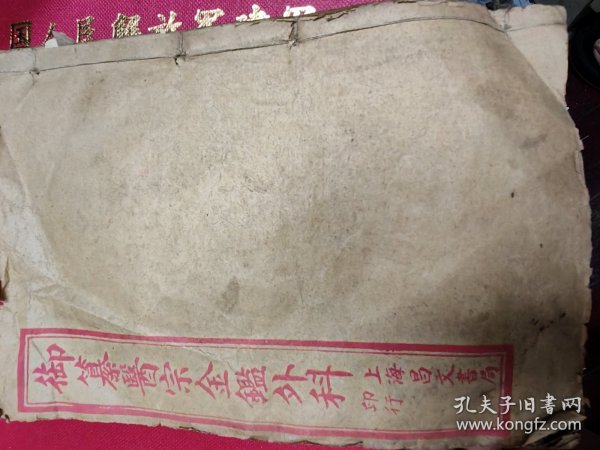 国人民解放军
御纂醫宗金鑑外科
上海昌文書局
印行
孔夫子旧书网
www.kongfz.com